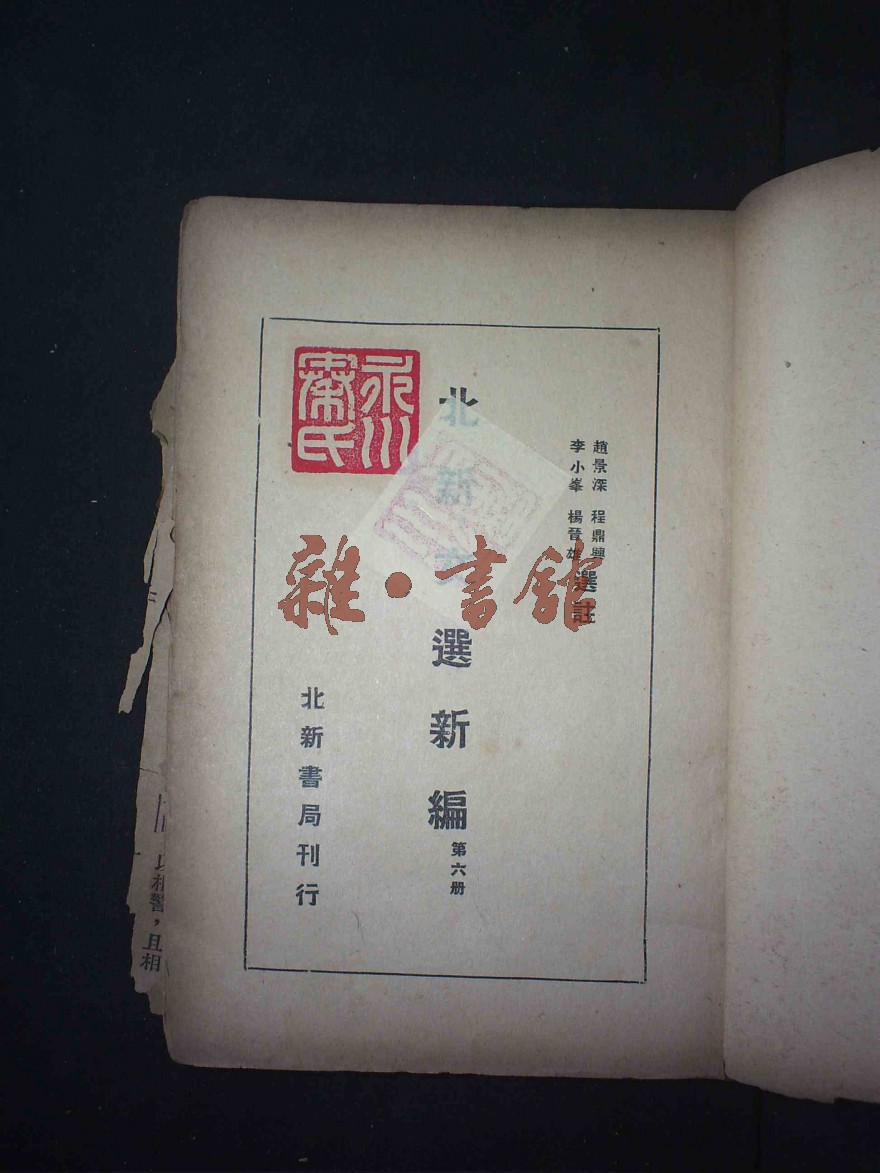 趙景深 程鼎興
李小峯 楊晉雄
選註
北新文選新編
第六册
北新書局刊行
永川
秦氏
雜·書館
以相警，且相